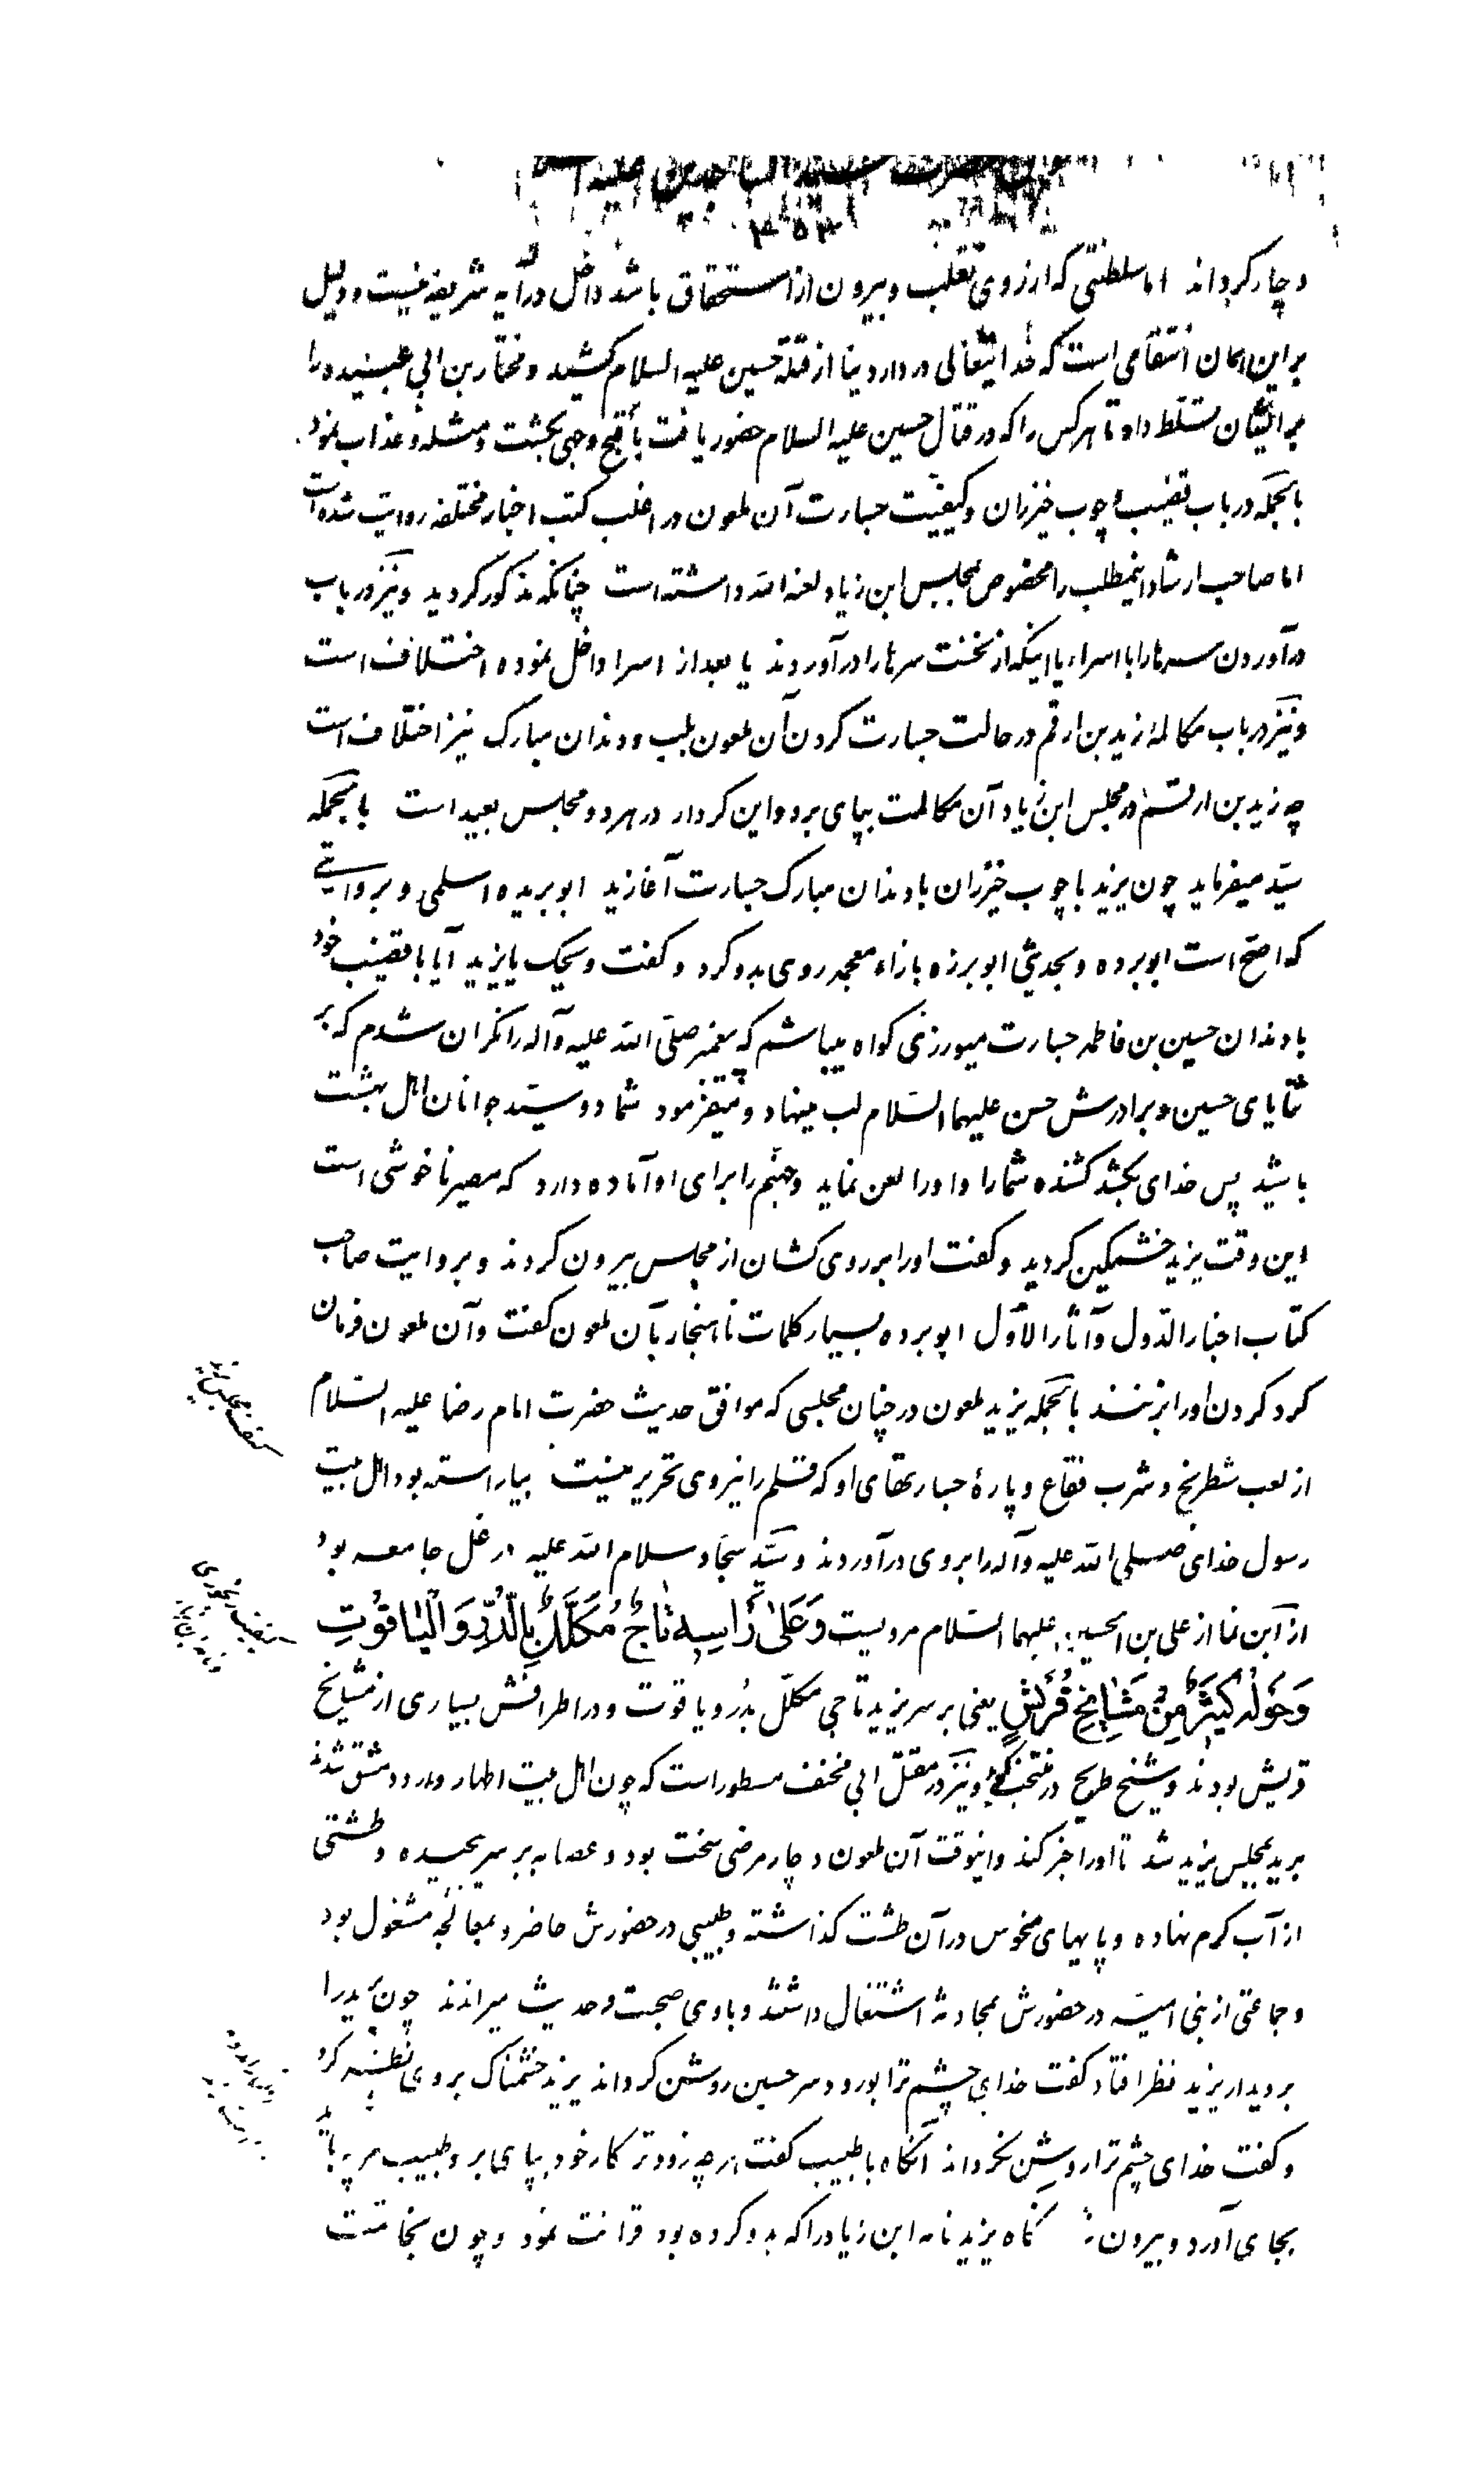 ۴۵۳
دچار گرداند اما سلطنتی که از روی تغلب و بیرون از استحقاق باشد داخل در آیه شریفه نیست و دلیل
بر این امکان انتقامی است که خدایتعالی در دار دنیا از قتلهٔ حسین علیه السلام کشید و مختار بن ابی عبیده را
بر ایشان مسلط داد تا هر کس را که در قتال حسین علیه السلام حضور یافت باقبح وجهی بکشت و مثله و عذاب نمود
بالجمله در باب قضیب و چوب خیزران و کیفیت جسارت آن ملعون در اغلب کتب اخبار مختلفه روایت شده است
اما صاحب ارشاد اینمطلب را مخصوص بمجلس ابن زیاد لعنه الله داشته است چنانکه مذکور گردید و نیز در باب
در آوردن سرها را با اسراء یا اینکه از نخست سرها را در آوردند یا بعد از اسرا داخل نموده اختلاف است
و نیز در باب مکالمهٔ زید بن ارقم در حالت جسارت کردن آن ملعون بلب و دندان مبارک نیز اختلاف است
چه زید بن ارقم در مجلس ابن زیاد آن مکالمت بپای برد و این کردار در هر دو مجلس بعید است بالجمله
سیّد میفرماید چون یزید با چوب خیزران بدندان مبارک جسارت آغازید ابو بریده اسلمی و بروایتی
که اصح است ابو برده و بحدیثی ابو برزه بازاء معجمه روی بدو کرد و گفت ویحک یا یزید آیا با قضیب خود
بدندان حسین بن فاطمه جسارت میورزی گواه میباشم که پیغمبر صلّی الله علیه و آله را نگران شدم که بر
ثنایای حسین و برادرش حسن علیهما السّلام لب مینهاد و میفرمود شما دو سیّد جوانان اهل بهشت
باشید پس خدای بکشد کشنده شما را و او را لعن نماید و جهنم را برای او آماده دارد که مصیر ناخوشی است
این وقت یزید خشمگین گردید و گفت او را بر روی کشان از مجلس بیرون کردند و بروایت صاحب
کتاب اخبار الدّول و آثار الاوّل ابو برده بسیار کلمات ناهنجار بآن ملعون گفت و آن ملعون فرمان
کرد گردن او را بزنند بالجمله یزید ملعون در چنان مجلسی که موافق حدیث حضرت امام رضا علیه السّلام
از لعب شطرنج و شرب فقاع و پارهٔ جسارتهای او که قلم را نیروی تحریر نیست بیاراسته بود اهل بیت
رسول خدای صلی الله علیه و آله را بروی در آوردند و سیّد سجّاد سلام الله علیه در غل جامعه بود
از ابن نما از علی بن الحسین علیهما السّلام مرویست وَعَلیٰ رَاسِهِ تاجٌ مُکَلَّلٌ بِالدُّرِّ وَالْیٰاقُوتِ
وَحَوْلَهُ کَثِیرٌ مِنْ مَشٰایِخِ قُرَیْشٍ یعنی بر سر یزید تاجی مکلّل بدُر و یاقوت و در اطرافش بسیاری از مشایخ
قریش بودند و شیخ طریح در منتخب گوید و نیز در مقتل ابی مخنف مسطور است که چون اهل بیت اطهار وارد دمشق شدند
برید بمجلس یزید شد تا او را خبر کند و اینوقت آن ملعون دچار مرضی سخت بود و عصابه بر سر پیچیده و طشتی
از آب گرم نهاده و پایهای منحوس در آن طشت گذاشته و طبیبی در حضورش حاضر و بمعالجه مشغول بود
و جماعتی از بنی امیّه در حضورش بمحادثه اشتغال داشتند و با وی صحبت و حدیث میراندند چون برید را
بر دیدار یزید نظر افتاد گفت خدای چشم ترا بورود سر حسین روشن گرداند یزید خشمناک بروی نظر کرد
و گفت خدای چشم ترا روشن نگرداند آنگاه با طبیب گفت هر چه زودتر کار خود بپای بر و طبیب هر چه باید
بجای آورد و بیرون یزید نامه ابن زیاد را که بدو کرده بود قرائت نمود و چون بخاتمت